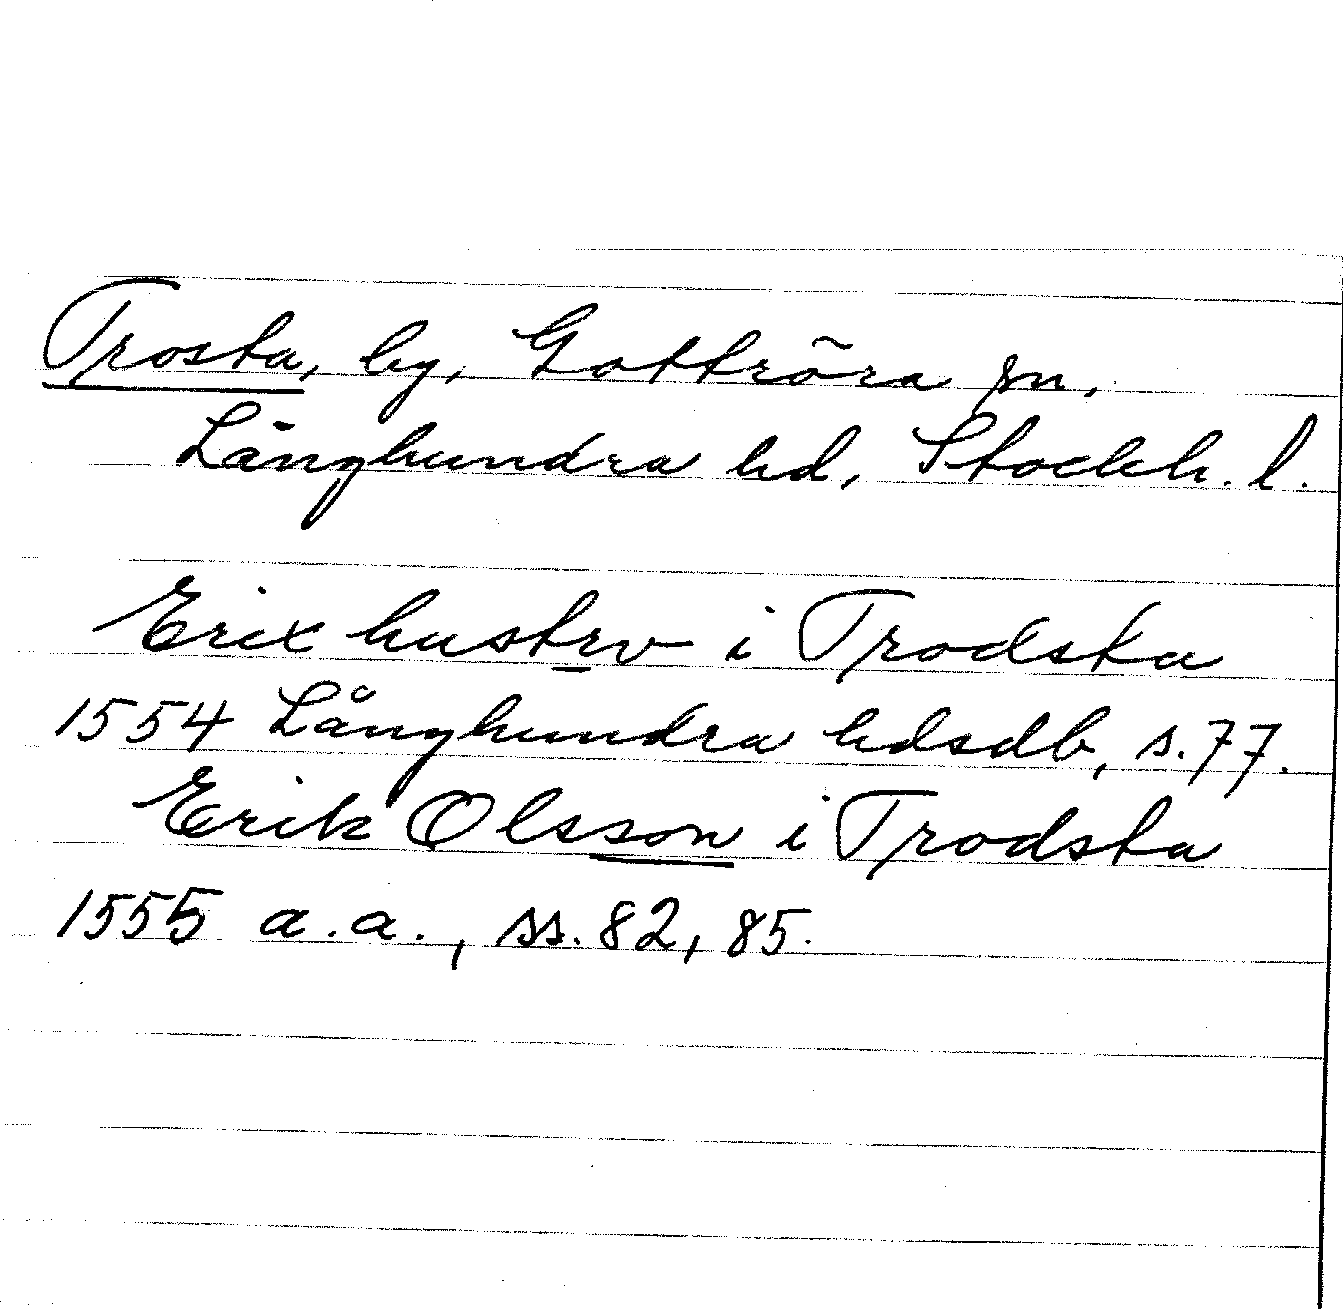 Trosta, by, Gottröra sn,
Långhundra hd, Stockh. l.
Erix hustrv i Trodsta
1554 Långhundra hdsdb, s. 77.
Erik Olsson i Trodsta
1555 a. a., ss. 82, 85.